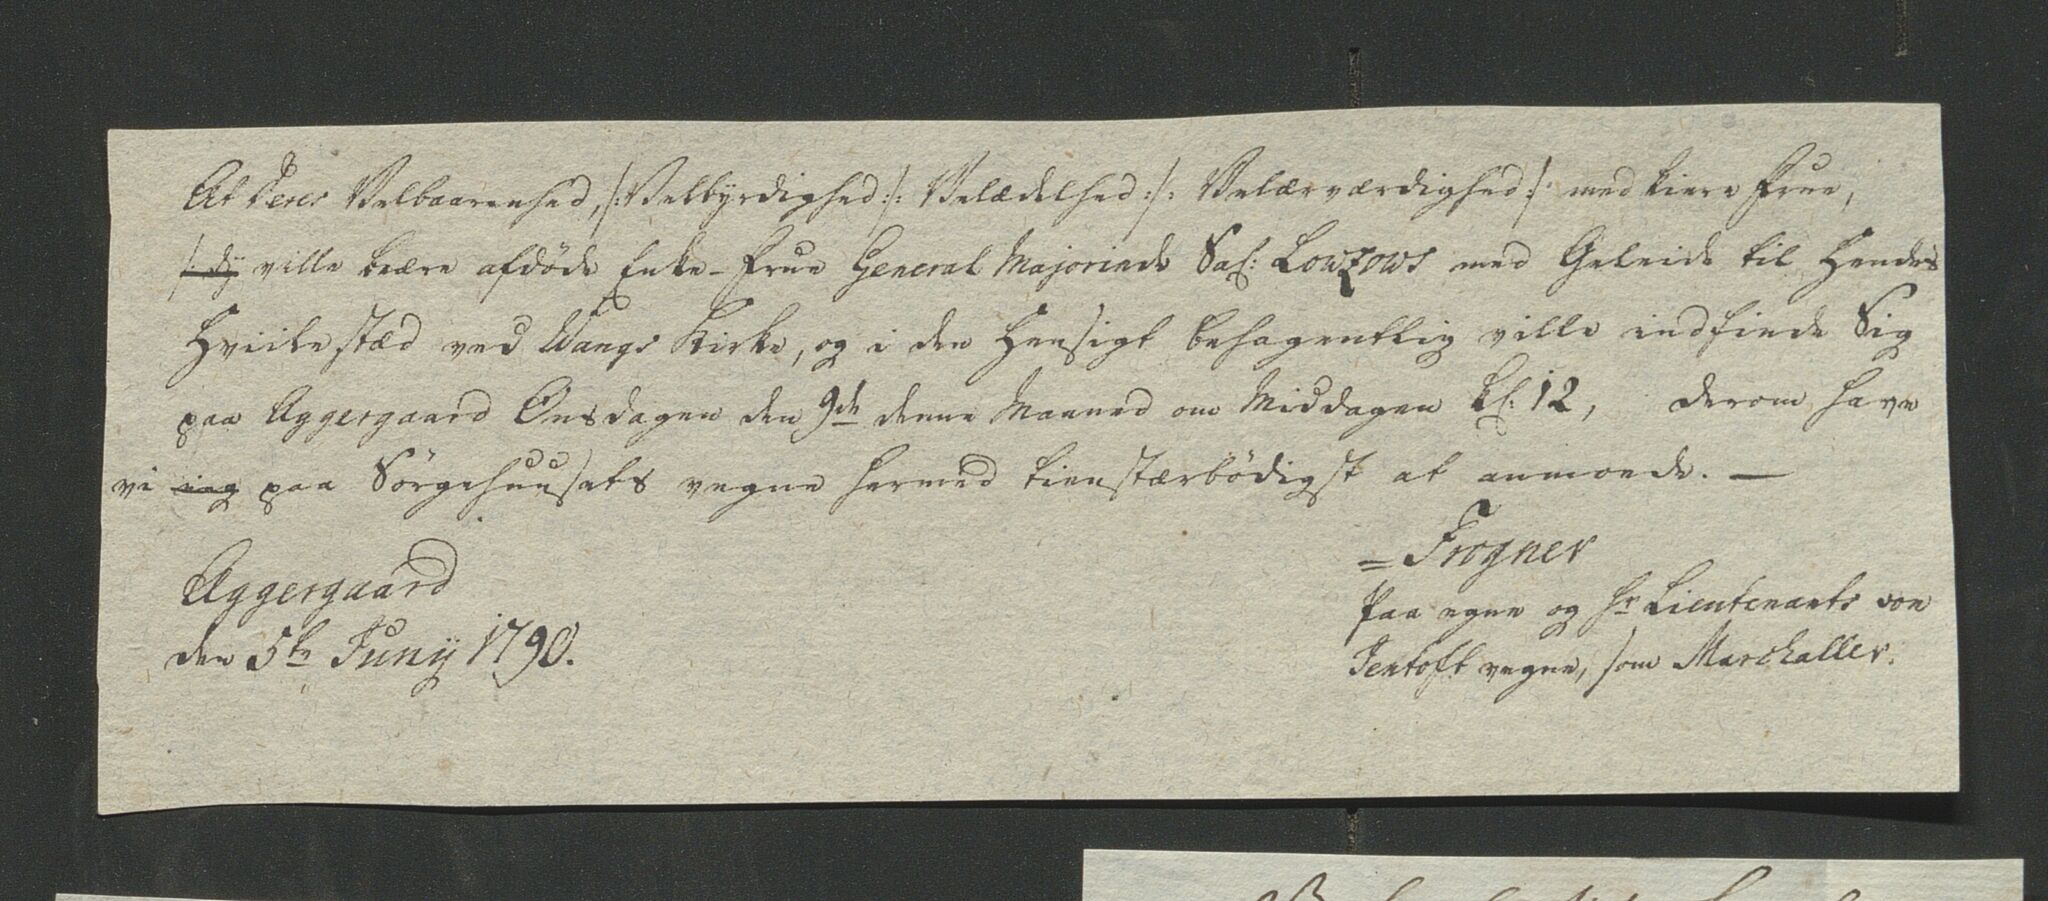 At Deres Velbaarenhed, /: Velbyrdighed :/: Velædelhed :/: Velærværdighed :/ med kiere Frue,
ville beære afdöde Enke-Frue General Majorinde Sal: Lowzows med Geleide til Hendes
Hvilestæd ved Wangs Kirke, og i den Hensigt behagentlig ville indfinde Sig
paa Aggergaard Onsdagen den 9de denne Maaned om Middagen Kl: 12, derom have
vi ieg paa Sörgehuusets vegne hermed tienstærbödigst at anmoede. —
Aggergaard
den 5te Junij 1790.
= Frogner
Paa egne og Hr Lieutenants von
Jentoft vegne, som Marchaller.